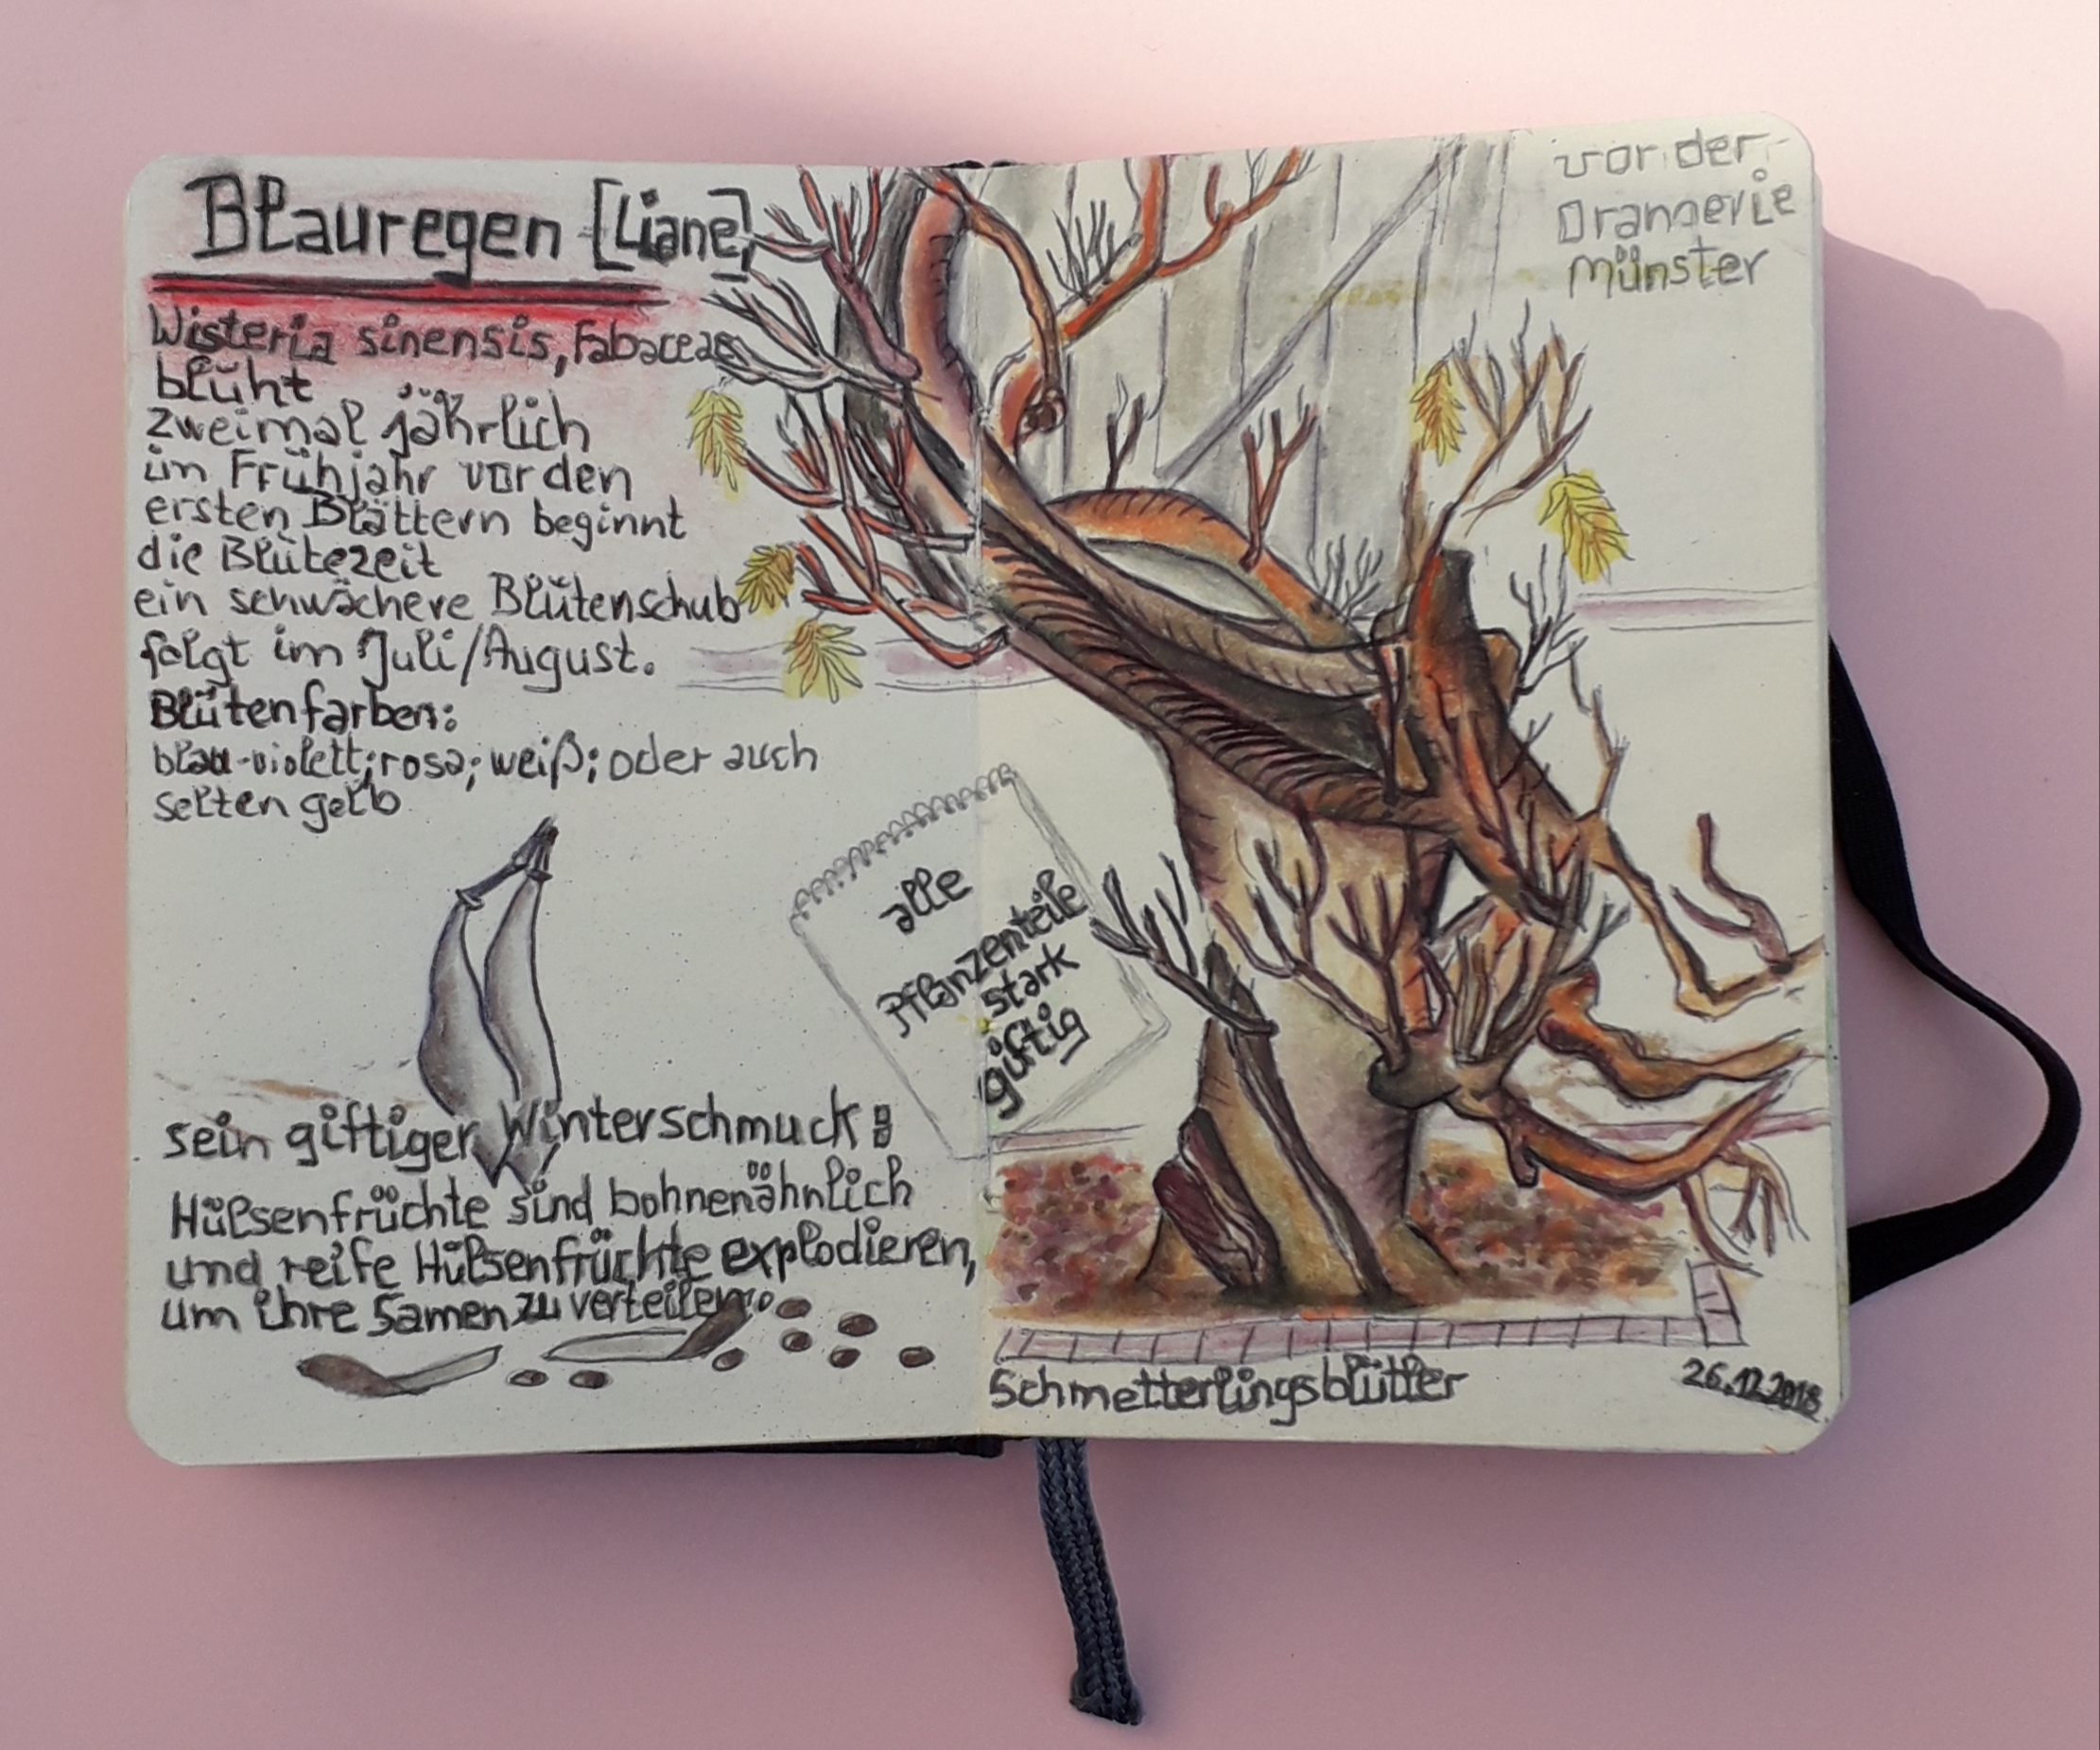 Blauregen [Liane]
Wisteria sinensis, Fabaceae
blüht
zweimal jährlich
im Frühjahr vor den
ersten Blättern beginnt
die Blütezeit
ein schwächere Blütenschub
folgt im Juli/August.
Blütenfarben:
blau-violett; rosa; weiß; oder auch
selten gelb
sein giftiger Winterschmuck:
Hülsenfrüchte sind bohnenähnlich
und reife Hülsenfrüchte explodieren,
um ihre Samen zu verteilen.
alle
Pflanzenteile
stark
giftig
vor der
Orangerie
Münster
Schmetterlingsblütler
26.12.2018